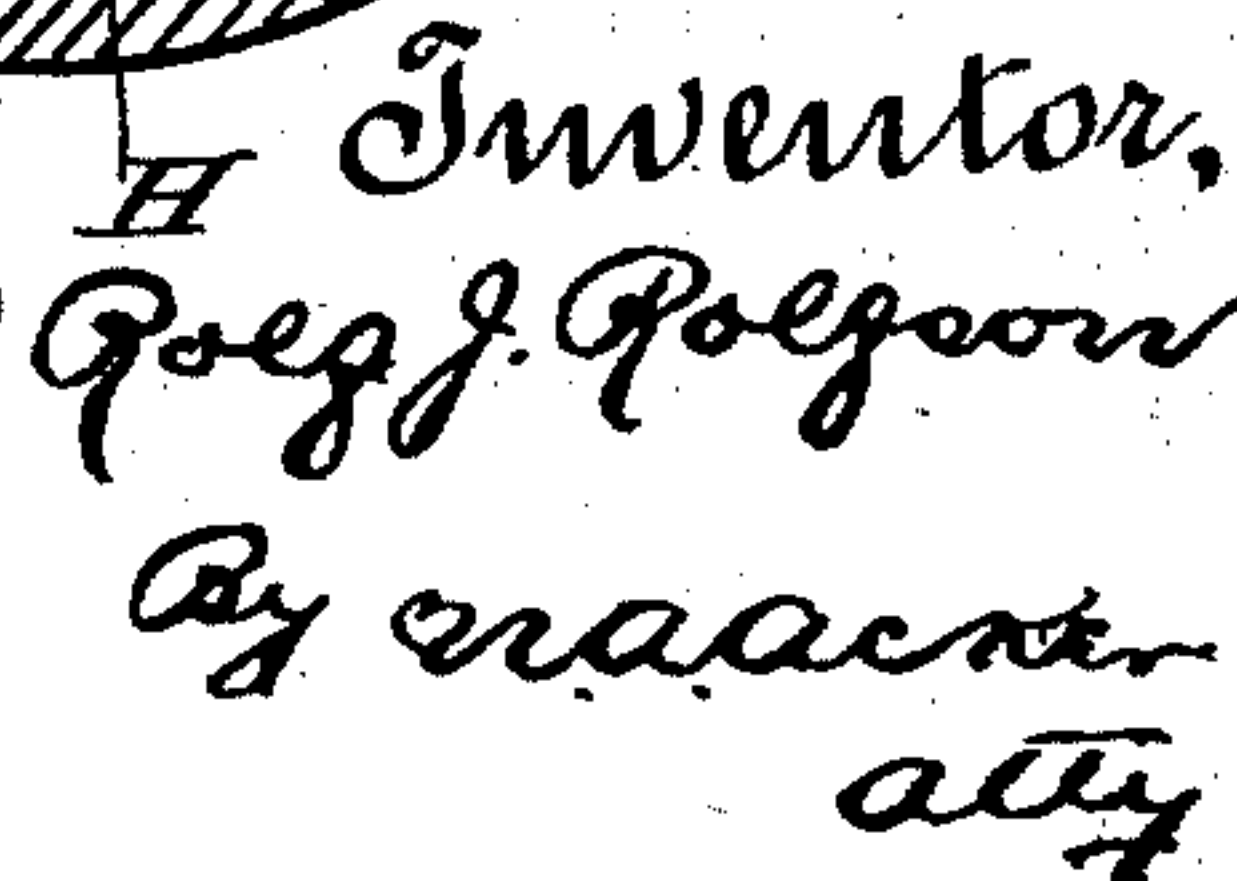 Inventor.
H
Rolg J. Rolgson
By N. A. Acker
Atty